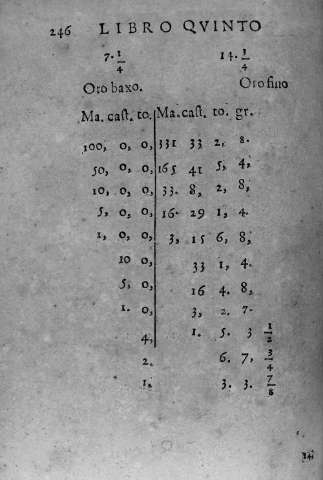 246 LIBRO QVINTO
7. 1/4 14. 1/4
Oro baxo. Oro fino
Ma. cast. to. Ma. cast. to. gr.
100, 0, 0, 331 33 2, 8.
50, 0, 0, 165 41 5, 4,
10, 0, 0, 33. 8, 2, 8,
5, 0, 0, 16. 29 1, 4.
1, 0, 0, 3, 15 6, 8,
10 0, 33 1, 4.
5, 0, 16 4. 8,
1. 0, 3, 2. 7.
4, 1. 5. 3 1/2
2. 6. 7, 3/4
1. 3. 3. 7/8